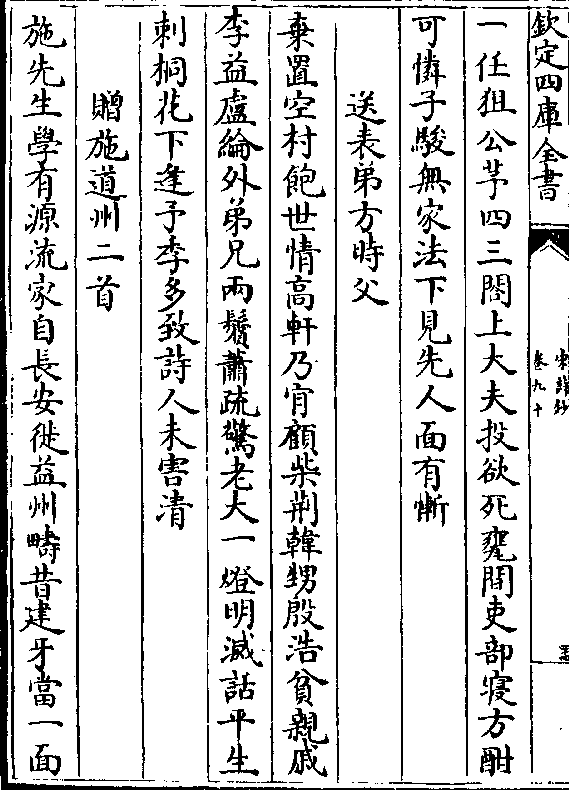 欽定四庫全書
宋詩鈔
卷九十
一任狙公芧四三閣上大夫投欲死甕間吏部寝方酣
可憐子駿無家法下見先人面有慚
送表弟方時父
棄置空村飽世情高軒乃肯顧柴荆韓甥殷浩貧親戚
李益盧綸外弟兄兩鬢蕭疏驚老大一燈明滅話平生
刺桐花下逢予季多致詩人未害清
贈施道州二首
施先生學有源流家自長安徙益州疇昔建牙當一面